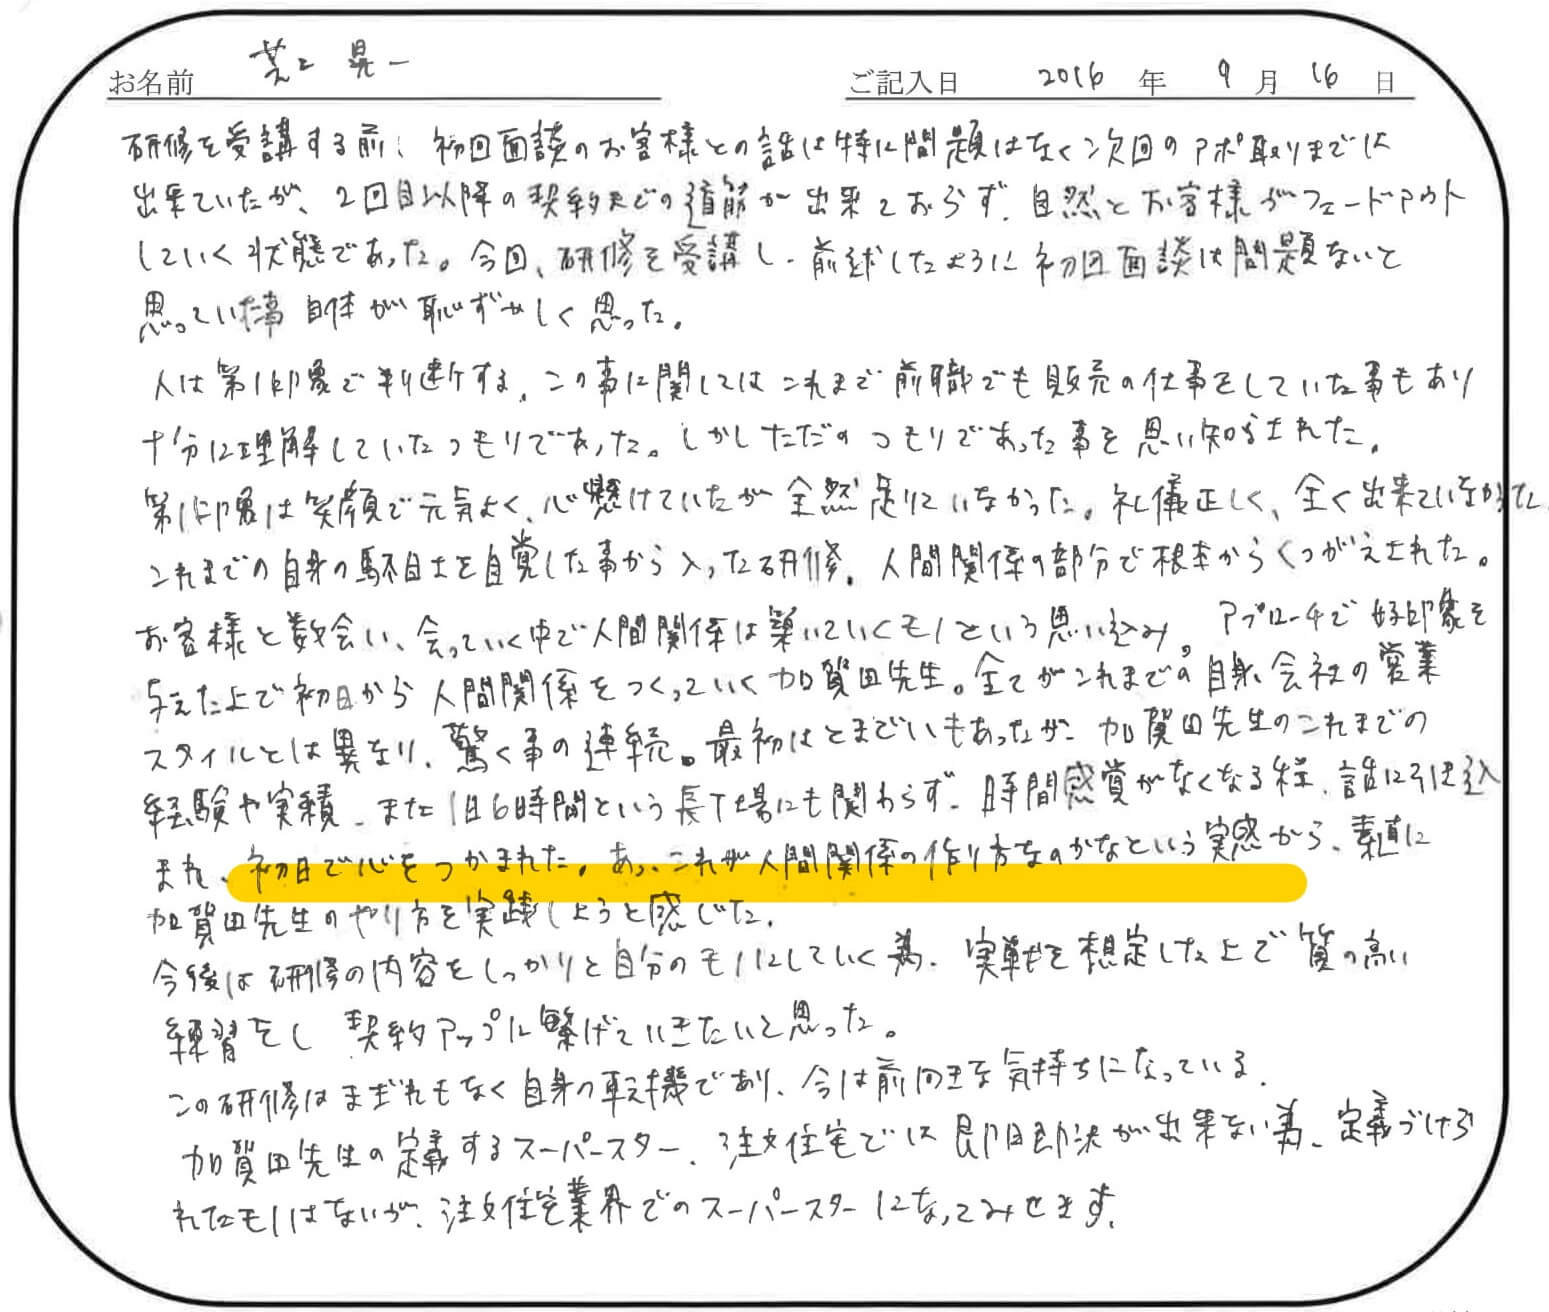 お名前 芝上 晃一 ご記入日 2016 年 9 月 16 日
研修を受講する前、初回面談のお客様との話は特に問題はなく次回のアポ取りまでは
出来ていたが、2回目以降の契約までの道筋が出来ておらず、自然とお客様がフェードアウト
していく状態であった。今回、研修を受講し、前述したように初回面談は問題ないと
思っていた事自体が恥ずかしく思った。
人は第1印象で判断する。この事に関してはこれまで前職でも販売の仕事をしていた事もあり
十分に理解していたつもりであった。しかしただのつもりであった事を思い知らされた。
第1印象は笑顔で元気よく、心懸けていたが全然足りていなかった。礼儀正しく、全く出来ていなかった。
これまでの自身の駄目さを自覚した事から入った研修。人間関係の部分で根本からくつがえされた。
お客様と数会い、会っていく中で人間関係は築いていくモノという思い込み。アプローチで好印象を
与えた上で初日から人間関係をつくっていく加賀田先生。全てがこれまでの自身、会社の営業
スタイルとは異なり、驚く事の連続。最初はとまどいもあったが、加賀田先生のこれまでの
経験や実績、また1日6時間という長丁場にも関わらず、時間感覚がなくなる様、話に引き込
まれ、初日で心をつかまれた。あっ、これが人間関係の作り方なのかなという実感から、素直に
加賀田先生のやり方を実践しようと感じた。
今後は研修の内容をしっかりと自分のモノにしていく為、実戦を想定した上で質の高い
練習をし契約アップに繋げていきたいと思った。
この研修はまぎれもなく自身の転機であり、今は前向きな気持ちになっている。
加賀田先生の定義するスーパースター、注文住宅では即日即決が出来ない為、定義づけら
れたモノはないが、注文住宅業界でのスーパースターになってみせます。